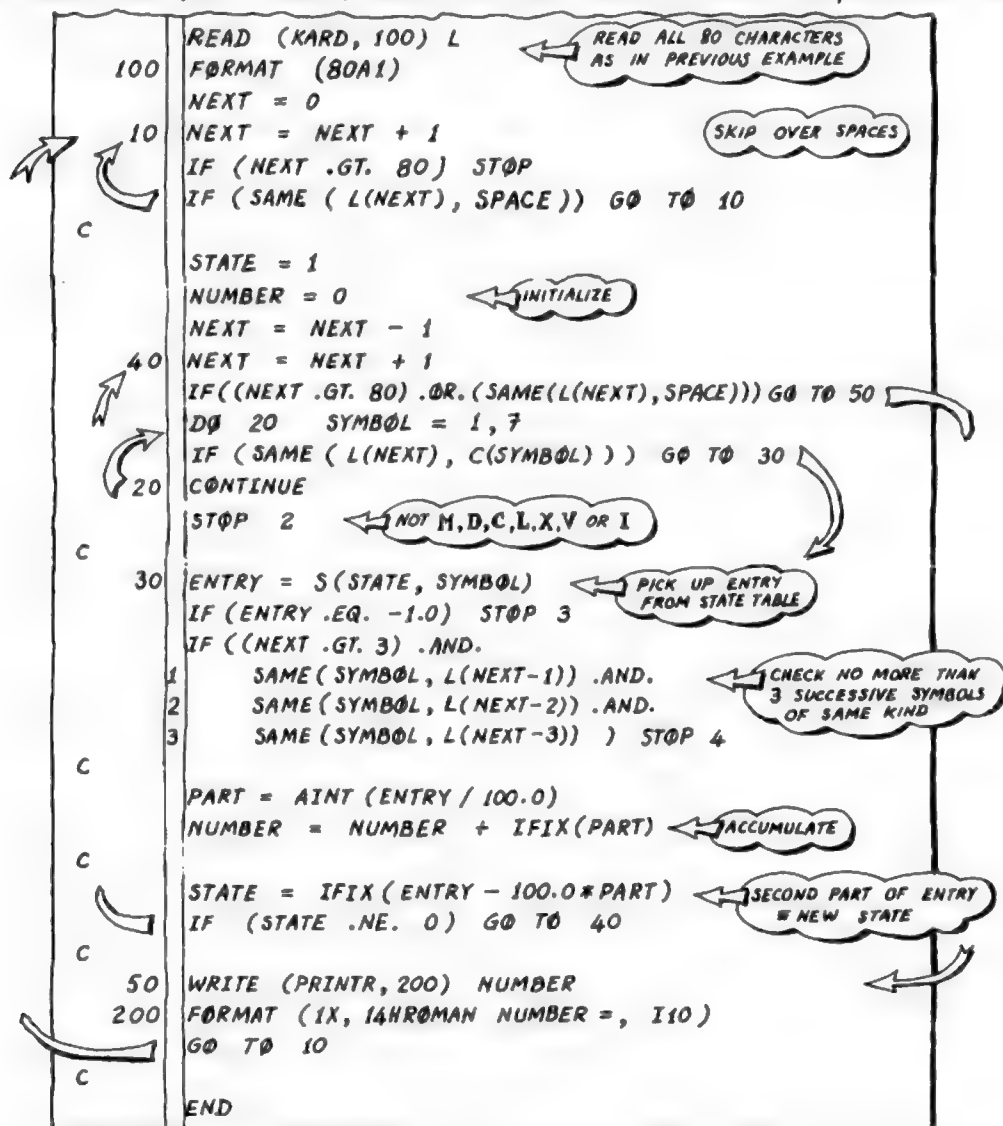 READ (KARD, 100) L
READ ALL 80 CHARACTERS
AS IN PREVIOUS EXAMPLE
100 FØRMAT (80A1)
NEXT = 0
10 NEXT = NEXT + 1
SKIP OVER SPACES
IF (NEXT .GT. 80) STØP
IF ( SAME ( L(NEXT), SPACE )) GØ TØ 10
C
STATE = 1
NUMBER = 0
INITIALIZE
NEXT = NEXT - 1
40 NEXT = NEXT + 1
IF((NEXT .GT. 80) .ØR. (SAME(L(NEXT),SPACE))) GØ TØ 50
DØ 20 SYMBØL = 1, 7
IF ( SAME ( L(NEXT), C(SYMBØL) ) ) GØ TØ 30
20 CØNTINUE
STØP 2
NOT M,D,C,L,X,V OR I
C
30 ENTRY = S(STATE, SYMBØL)
PICK UP ENTRY
FROM STATE TABLE
IF (ENTRY .EQ. -1.0) STØP 3
IF ((NEXT .GT. 3) .AND.
1 SAME( SYMBØL, L(NEXT-1)) .AND.
2 SAME( SYMBØL, L(NEXT-2)) .AND.
3 SAME (SYMBØL, L(NEXT-3)) ) STØP 4
CHECK NO MORE THAN
3 SUCCESSIVE SYMBOLS
OF SAME KIND
C
PART = AINT (ENTRY / 100.0)
NUMBER = NUMBER + IFIX(PART)
ACCUMULATE
C
STATE = IFIX ( ENTRY - 100.0 * PART)
SECOND PART OF ENTRY
= NEW STATE
IF (STATE .NE. 0) GØ TØ 40
C
50 WRITE (PRINTR, 200) NUMBER
200 FØRMAT (1X, 14HRØMAN NUMBER =, I10 )
GØ TØ 10
C
END